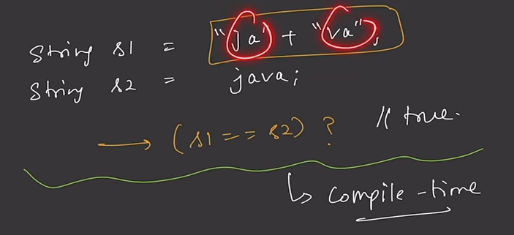 String s1 = "ja" + "va";
String s2 = java;
→ (s1 == s2) ? // true.
↳ compile-time